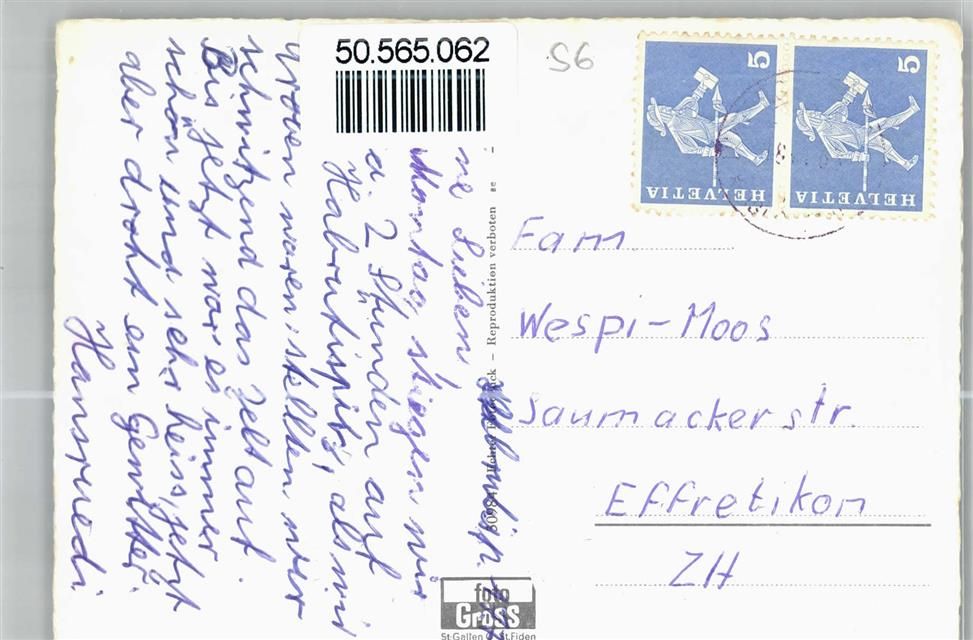 50.565.062
56
5
HELVETIA
5
HELVETIA
ne Lieben
Montag stiegen wir
u. 2 Stunden auf
Habrütispitz, als wir
oben waren stellten wir
schwitzend das Zelt auf.
Bis jetzt war es immer
schön und sehr heiss, jetzt
aber droht ein Gewitter.
Hansruedi
Reproduktion verboten
Fam.
Wespi-Moos
Saumackerstr.
Effretikon
ZH
foto
Gross
St. Gallen St. Fiden